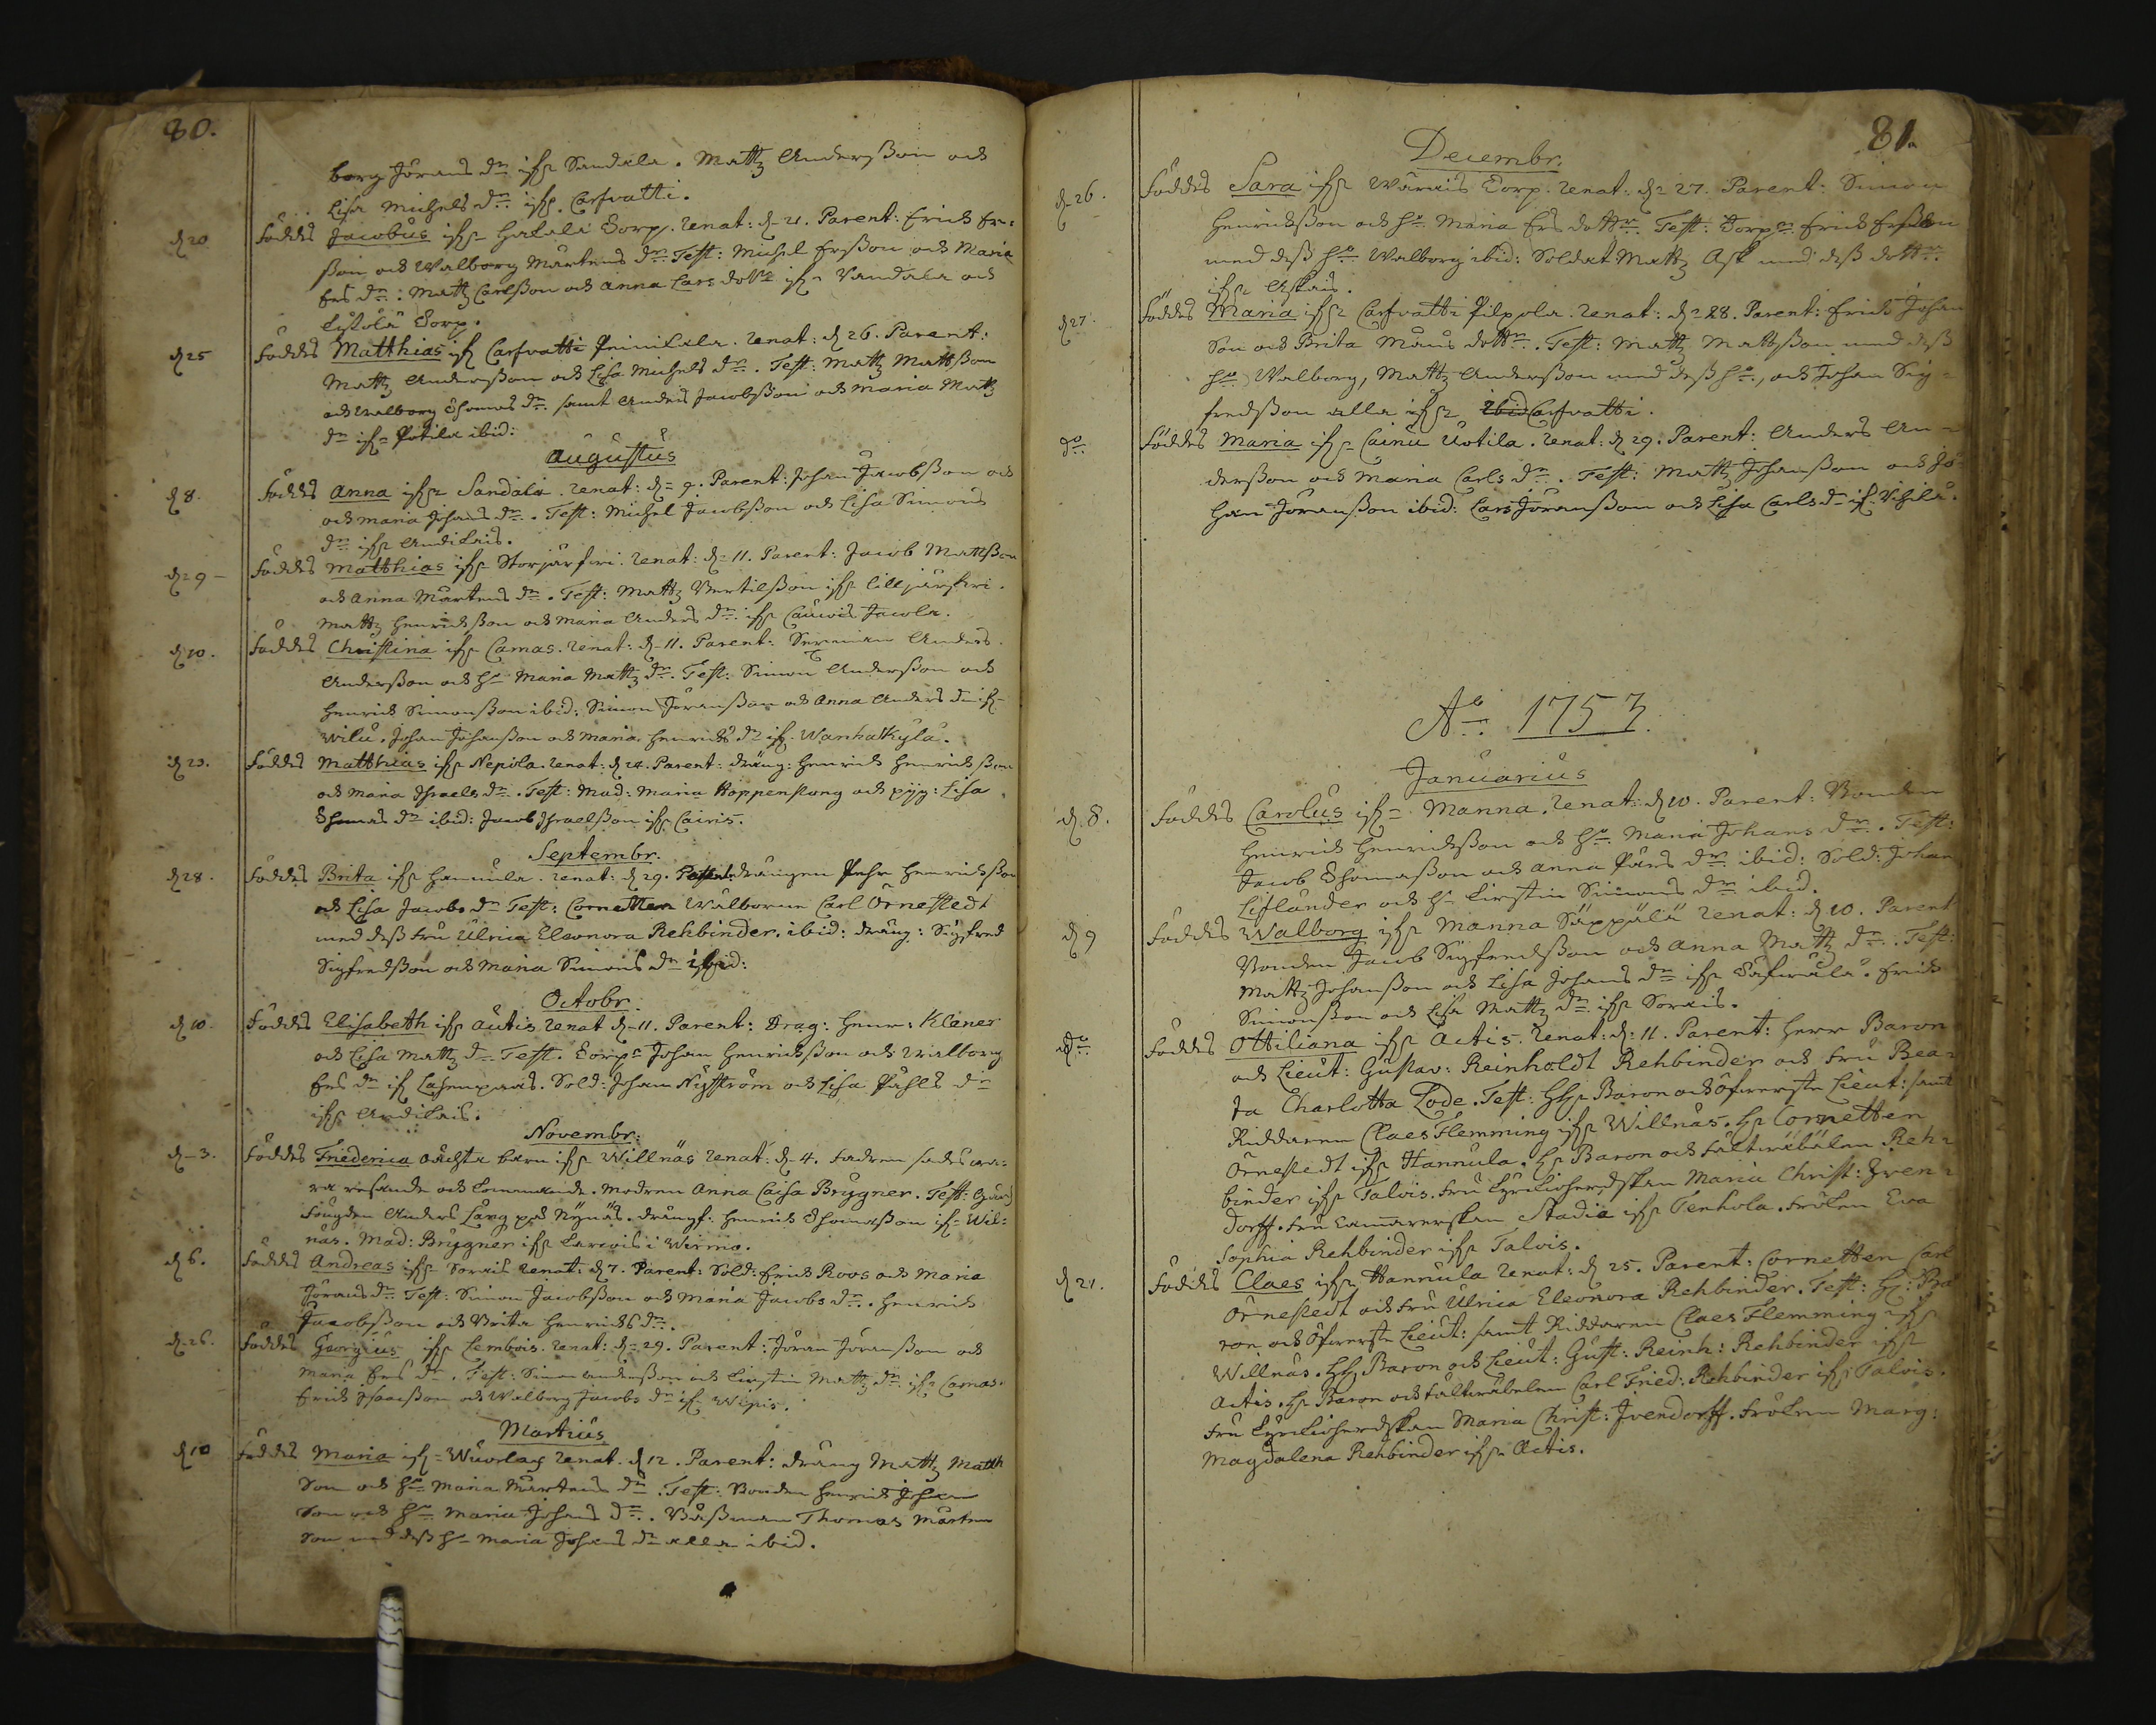 80.
borg Jörans dr ifr Sandala. Mattz Andersson och
Lisa Michels dr ifr Carfvatti.
d 20 Föddes Jacobus ifr Hakala Torp. Renat: d 21. Parent: Erich Er-
sson och Walborg Mårtens dr. Test: Michel Ersson och Maria
Ers dr: Mattz Carlsson och Anna Lars dotr ifr Vandala och
Torp.
d 25 Föddes Matthias ifr Carfvatti Prinikala. Renat: d 26. Parent:
Mattz Andersson och Lisa Michels dr. Test: Mattz Mattsson
och Walborg Thomas dr. samt Anders Jacobsson och Maria Mattz
dr ifr Potila ibid:
Augustus
d 8. Föddes Anna ifr Sandala. Renat: d 9. Parent: Johan Jacobsson och
och Maria Johans dr. Test: Michel Jacobsson och Lisa Simons
dr ifr Andikais.
d 9 Föddes Matthias ifr Storjärfwi. Renat: d 11. Parent: Jacob Mattsson
och Anna Mårtens dr. Test: Mattz Bertilsson ifr Lilljärfwi.
Mattz Henrichsson och Maria Anders dr. ifr Cauvois Jacola.
d 10. Föddes Christina ifr Camas. Renat: d 11. Parent: Anders
Andersson och h. Maria Mattz dr. Test: Simon Andersson och
Henrich Simonsson ibid: Simon Jöransson och Anna Anders dr ifr
Wilu. Johan Johansson och Maria Henrichs dr ifr Wanhakylä.
d 23. Föddes Matthias ifr Nepola. Renat: d 24. Parent: dräng: Henrich Henrichsson
och Maria Israels dr. Test: Mad: Maria Koppenstang och pijg: Lisa
Thomas dr ibid: Jacob Israelsson ifr Cairis.
Septembr.
d 28. Föddes Brita ifr Hannula. Renat: d 29. Parent: drängen Pehr Henrichsson
och Lisa Jacobs dr Test: Cornetten Wälborne Carl Örnestedt
med dess Fru Ulrica Eleonora Rehbinder. ibid: dräng: Sigfred
Sigfredsson och Maria Simons dr ibid:
Octobr.
d 10. Föddes Elisabeth ifr Autis. Renat d 11. Parent: Drag: Henr: Klaner
och Lisa Mattz dr Test. Torpr Johan Henrichsson och Walborg
Ers dr ifr Lasenpaas. Sold: Johan Nyström och Lisa Påhls dr
ifr Andikais.
Novembr:
d 3. Föddes Friederica oächta barn ifr Willnäs Renat: d 4. Fadren sades wa-
ra resande och Modren Anna Caisa Brügner. Test:
Fougden Anders Lång på Nynäs. drängf: Henrich Thomasson ifr Wil-
näs. Mad: Brügner ifr i Wirmo.
d 6. Föddes Andreas ifr Sorais Renat: d 7. Parent: Sold: Erich Roos och Maria
Jörans dr Test: Simon Jacobsson och Maria Jacobs dr. Henrich
Jacobsson och Brita Henrichs dr.
d 26. Föddes Georgius ifr Lembois. Renat: d 29. Parent: Jöran Jöransson och
Maria Ers dr. Test: Simon Andersson och Kirstin Mattz dr. ifr Camas.
Erich Isacsson och Walborg Jacobs dr ifr Wipis.
Martius
d 10 Föddes Maria ifr Wuorlax Renat. d 12. Parent: dräng Mattz Matth
Son och ho Maria Mårtens dr. Test: Bonden Henrich Johan
Son och ho Maria Johans dr. Båssman Thomas Mårten
Son med dess h Maria Johans dr alla ibid.
81.
Decembr.
d 26. Föddes Sara ifr Wärais Torp. Renat: d 27. Parent: Simon
Henrichsson och ho Maria Ers dottr. Test: Torpr Erich Ersson
med dess ho Walborg ibid: Soldat Mattz Ask med dess dottr
ifr Askais.
d 27. Föddes Maria ifr Carfvatti Pilpola. Renat: d 28. Parent: Erich Johan
Son och Brita Måns dottr. Test: Mattz Mattsson med dess
ho Walborg, Mattz Andersson med dess ho, och Johan Sig-
fredsson alla ifr Ibid Carfvatti.
do Föddes Maria ifr Cainu Uotila. Renat: d 29. Parent: Anders An-
dersson och Maria Carls dr. Test: Mattz Johansson och Jo-
han Jöransson ibid: Lars Jöransson och Lisa Carls dr ifr Vihila.
Ao 1753.
Januarius
d 8. Föddes Carolus ifr Manna. Renat: d 10. Parent: Bonden
Henrich Henrichsson och ho Maria Johans dr. Test:
Jacob Thomasson och Anna Pärs dr ibid: Sold: Johan
Lifländer och h Kirstin Simons dr ibid.
d 9 Föddes Walborg ifr Manna Säppälä Renat: d 10. Parent
Bonden Jacob Sigfredsson och Anna Mattz dr. Test:
Mattz Johansson och Lisa Johans dr ifr Erich
Simonsson och Lisa Mattz dr ifr Sorais.
do Föddes Ottiliana ifr Actis. Renat: d 11. Parent: Herr Baron
och Lieut: Gustav: Reinholdt Rehbinder och Fru Bea-
ta Charlotta Lode. Test: HHr Baron och Öfwerste Lieut: samt
Riddaren Claes Flemming ifr Willnäs. Hr Cornetten
Örnestedt ifr Hannula. Hr Baron och Fältwäbelen Reh-
binder ifr Talois. Fru Kyrckioherdskan Maria Christ: Iven-
dorff. Fru Camarerskan Stadia ifr Tenhola. Fröken Eva
Sophia Rehbinder ifr Talois.
d 21. Föddes Claes ifr Hannula Renat: d 25. Parent: Cornetten Carl
Örnestedt och Fru Ulrica Eleonora Rehbinder. Test: Hr: Ba
ron och Öfwerste Lieut: samt Riddaren Claes Flemming ifr
Willnäs. HHr Baron och Lieut: Gust: Reinh: Rehbinder ifr
Actis. Hr Baron och Fältwäbelen Carl Fried: Rehbinder ifr Talois.
Fru Kyrckioherdskan Maria Christ: Ivendorff. Fröken Marg:
Magdalena Rehbinder ifr Actis.